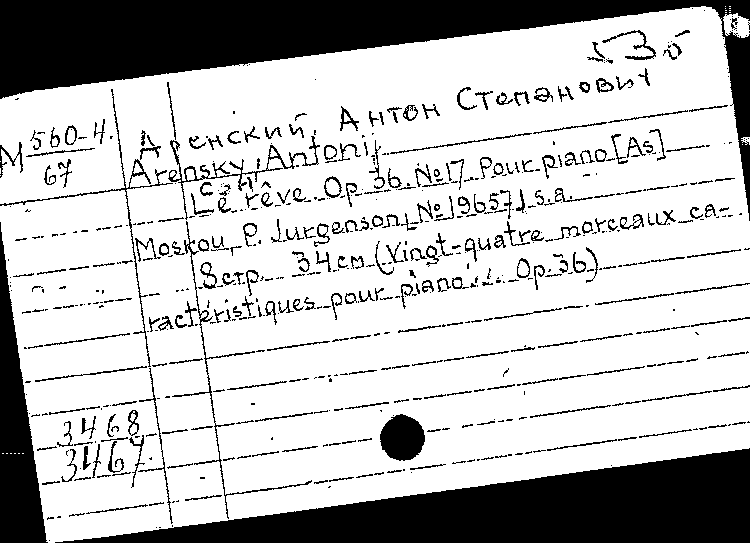 53б
M 560-4.
67
Аренский, Антон Степанович
Arensky, Antonij
Сон
Le rêve. Op 36. №17. Pour piano [As]
Moskou, P. Jurgenson, №19657, s.a.
8 стр. 34 см (Vingt-quatre morceaux ca-
ractéristiques pour piano... Op. 36)
3468
3467.